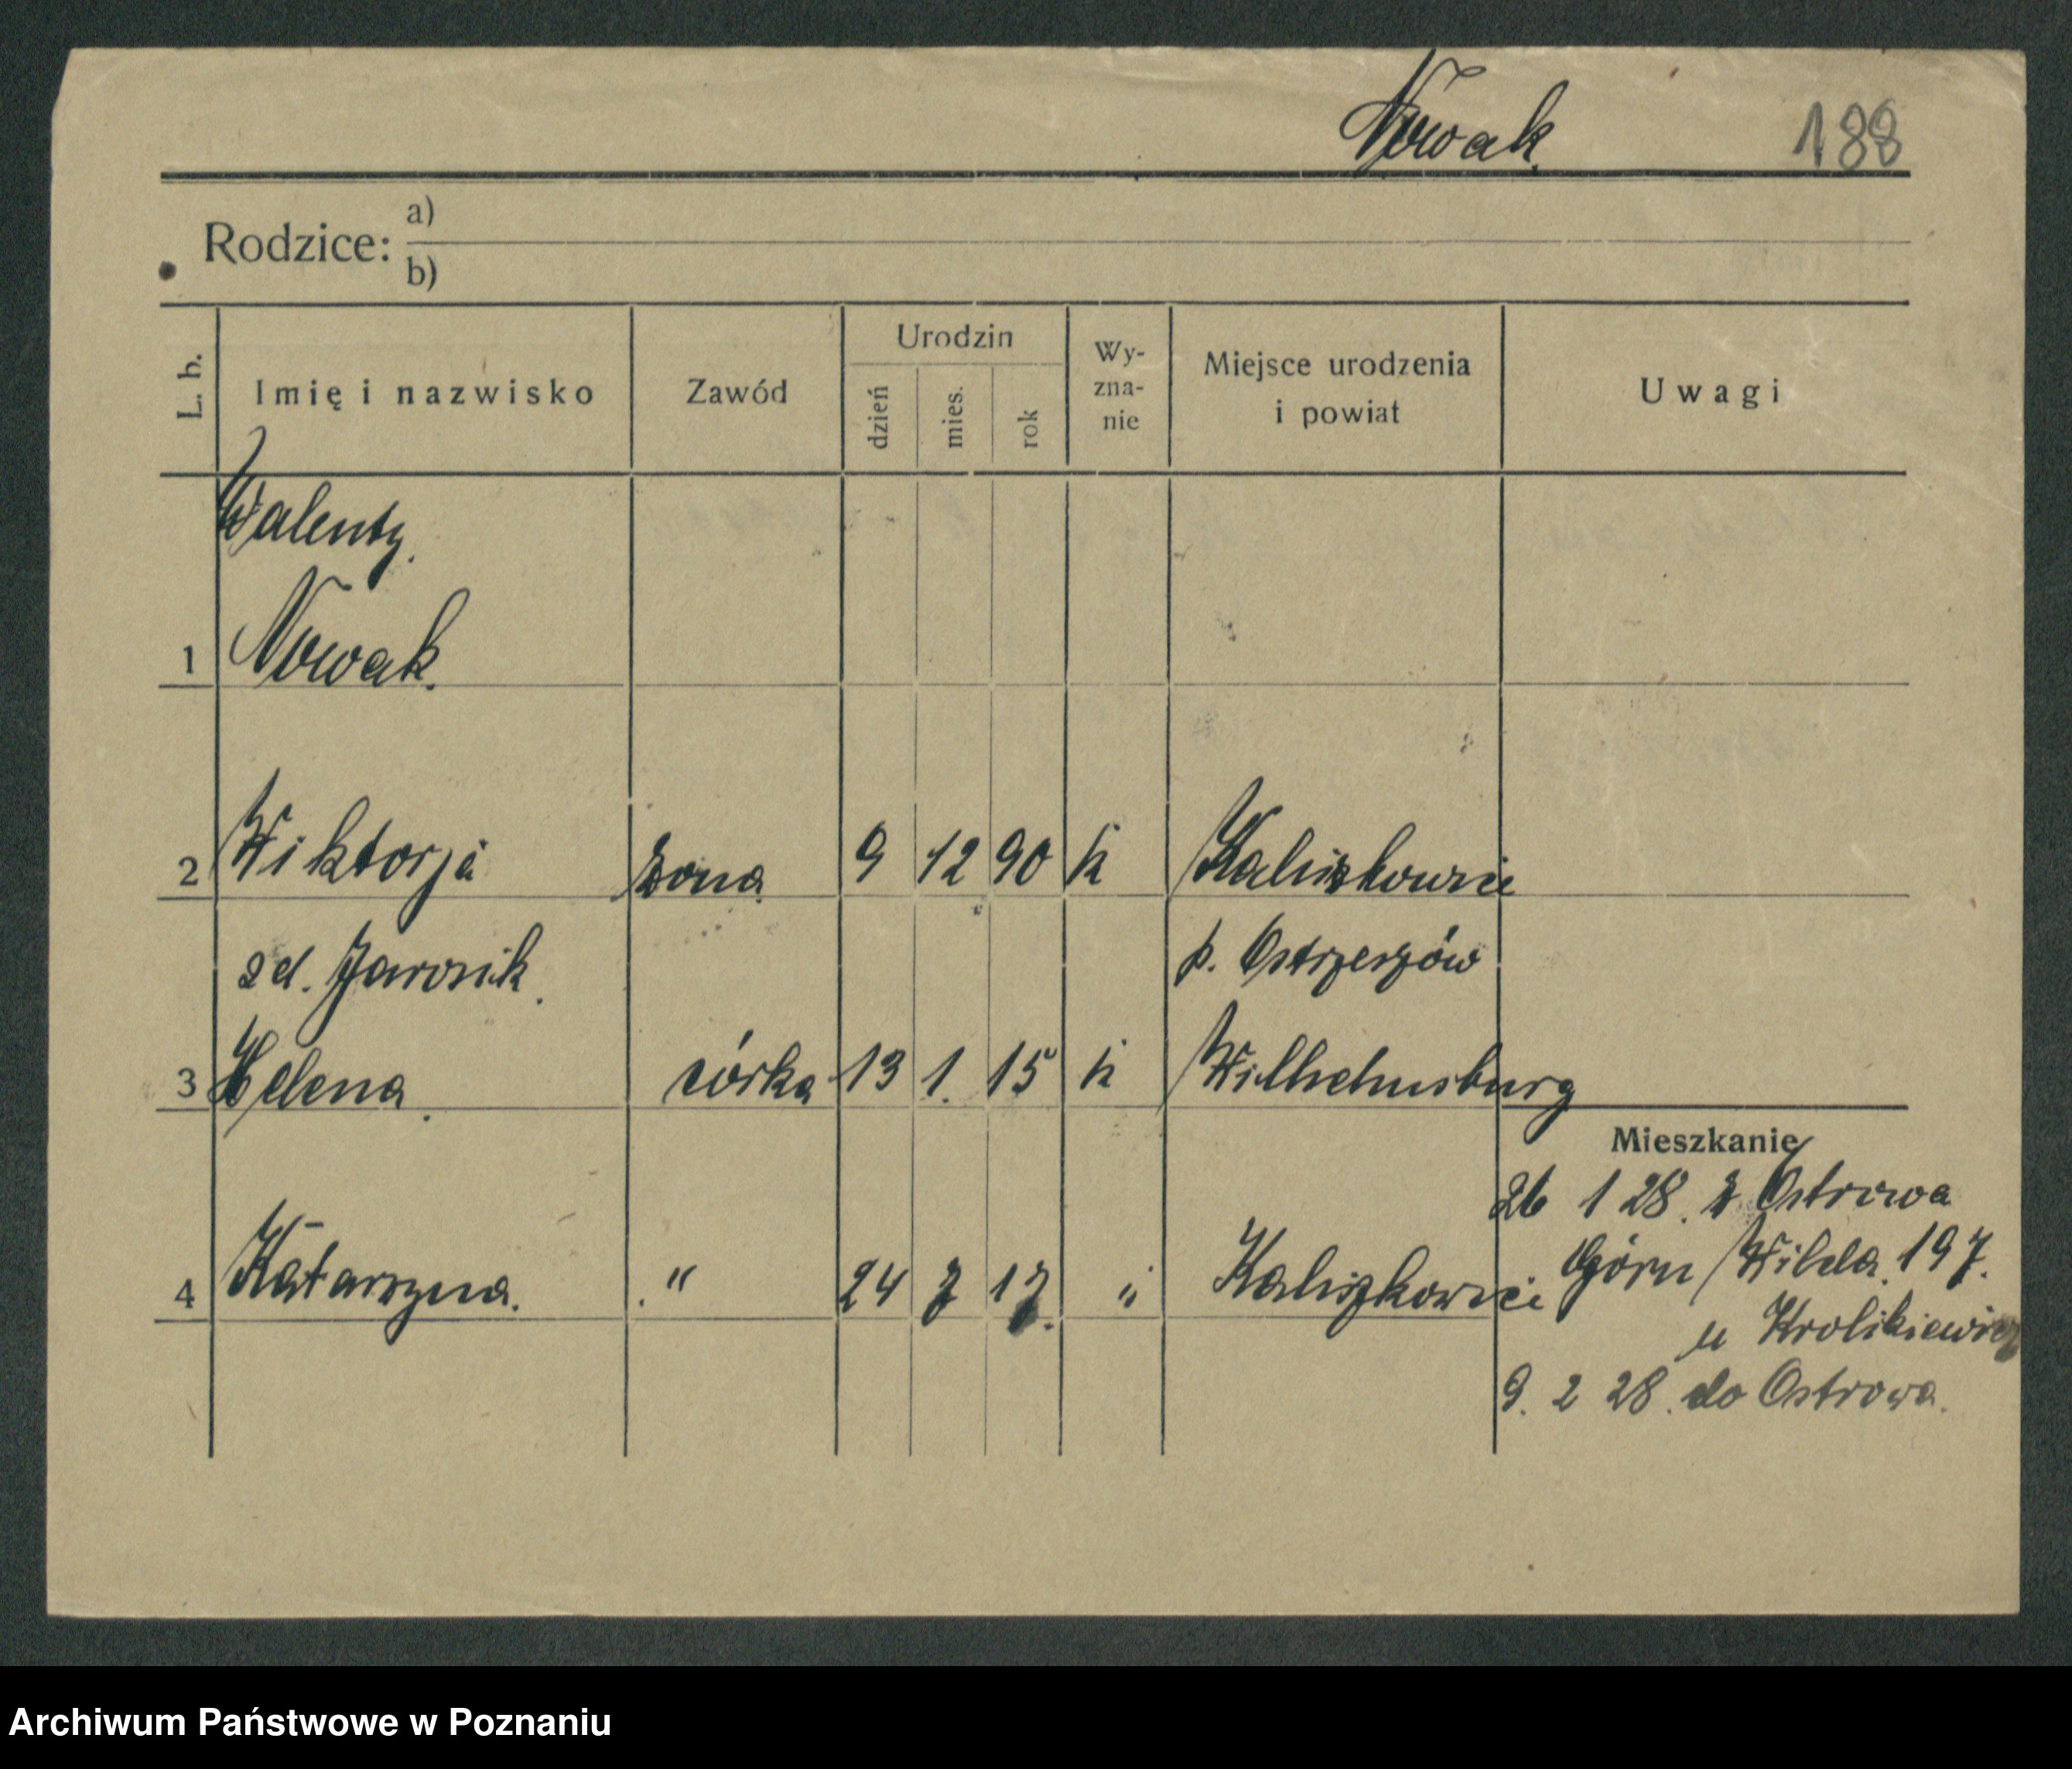 Nowak. 188
Rodzice: a)
b)
L. b. Imię i nazwisko Zawód Urodzin dzień mies. rok Wy-zna-nie Miejsce urodzenia i powiat Uwagi
Walenty.
1 Nowak.
2 Wiktorja żona 9 12 90 k Kaliszkowice
zd. Jarosik. p. Ostrzeszów
3 Helena. córka 13 1. 15 k Wilhelmsburg
Mieszkanie
26 1 28. z Ostrowa
Górn Wilda. 197.
4 Katarzyna. " 24 7 17. " Kaliszkowice
u Krolikiewicz
9. 2 28. do Ostrowa.
Archiwum Państwowe w Poznaniu